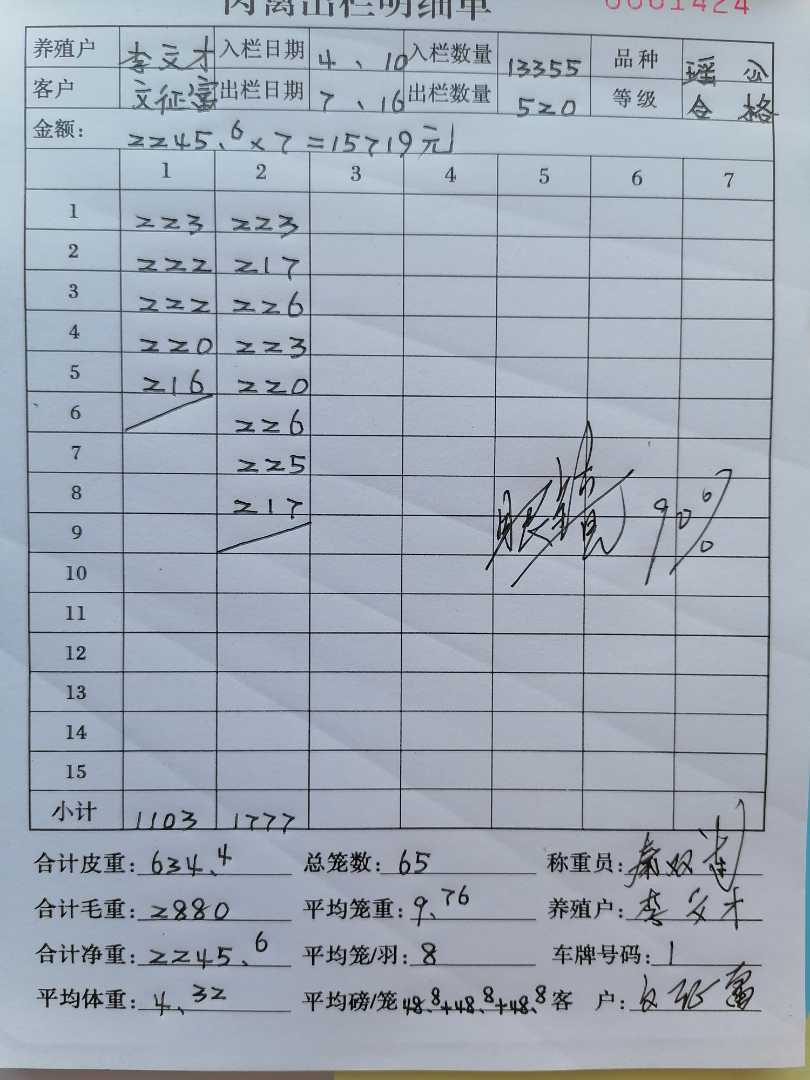 肉禽出栏明细单 0001424
养殖户 李文才 入栏日期 4、10 入栏数量 13355 品种 瑶公
客户 文征富 出栏日期 7、16 出栏数量 520 等级 合格
金额: 2245.6×7=15719元
1 2 3 4 5 6 7
1 223 223
2 222 217
3 222 226
4 220 223
5 216 220
6 226
7 225
8 217
9
10
11
12
13
14
15
小计 1103 1777
90%
合计皮重: 634.4 总笼数: 65 称重员: 秦双
合计毛重: 2880 平均笼重: 9.76 养殖户: 李文才
合计净重: 2245.6 平均笼/羽: 8 车牌号码: 1
平均体重: 4.32 平均磅/笼 48.8+48.8+48.8 客户: 文征富